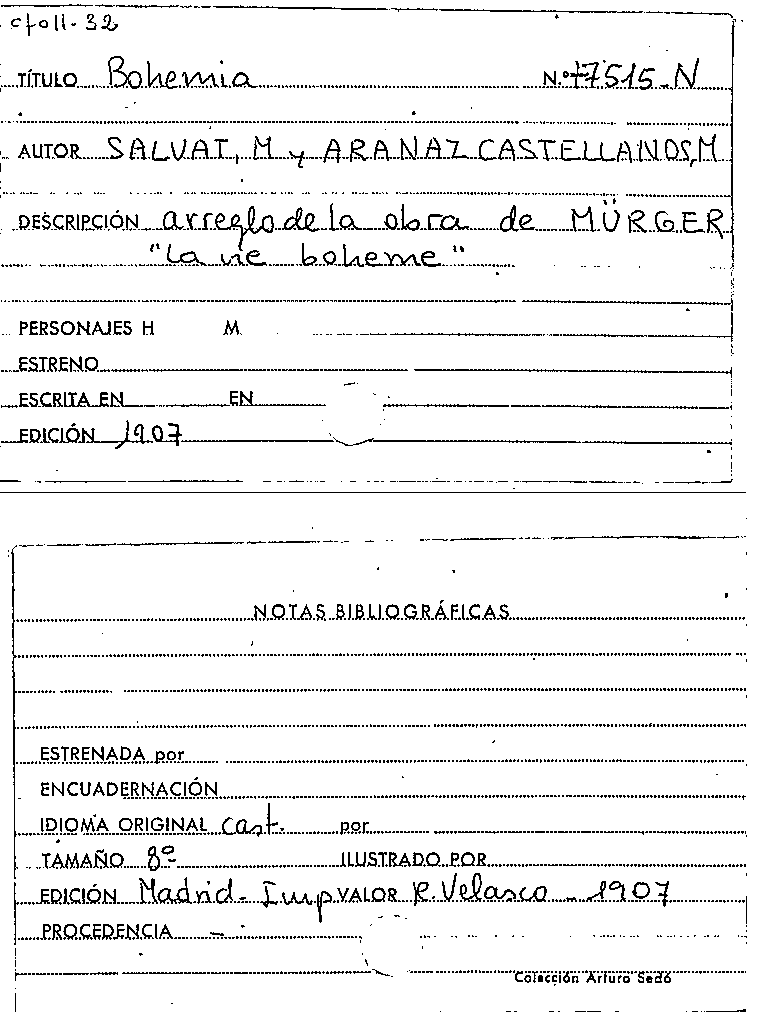 cfoll-32
TÍTULO Bohemia N.º 77515-N
AUTOR SALVAT, M y ARANAZ CASTELLANOS, M
DESCRIPCIÓN arreglo de la obra de MÜRGER
"La vie boheme"
PERSONAJES H M.
ESTRENO
ESCRITA EN EN
EDICIÓN 1907
NOTAS BIBLIOGRÁFICAS
ESTRENADA por
ENCUADERNACIÓN
IDIOMA ORIGINAL Cast. por
TAMAÑO 8º ILUSTRADO POR
EDICIÓN Madrid- Imp VALOR R. Velasco - 1907
PROCEDENCIA —
Colección Arturo Sedó